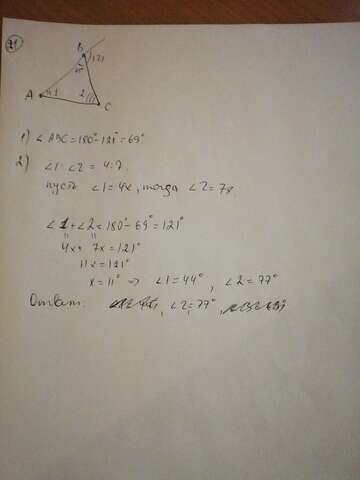 21
B
121
A 1 2 C
1) ∠ABC = 180° - 121° = 69°
2) ∠1 : ∠2 = 4:7.
пусть ∠1 = 4x, тогда ∠2 = 7x.
∠1 + ∠2 = 180° - 69° = 121°
4x + 7x = 121°
11x = 121°
x = 11° ⇒ ∠1 = 44°, ∠2 = 77°
Ответ: , ∠2 = 77°,